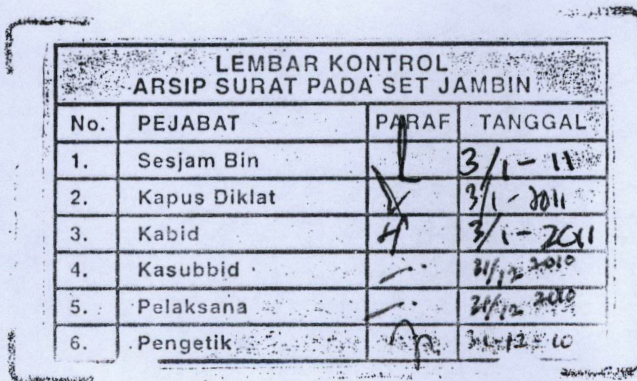 LEMBAR KONTROL
ARSIP SURAT PADA SET JAMBIN
No. PEJABAT PARAF TANGGAL
1. Sesjam Bin 3/1 - 11
2. Kapus Diklat 3/1 - 2011
3. Kabid 3/1 - 2011
4. Kasubbid 31/12 2010
5. Pelaksana 31/12 2010
6. Pengetik 31-12-10